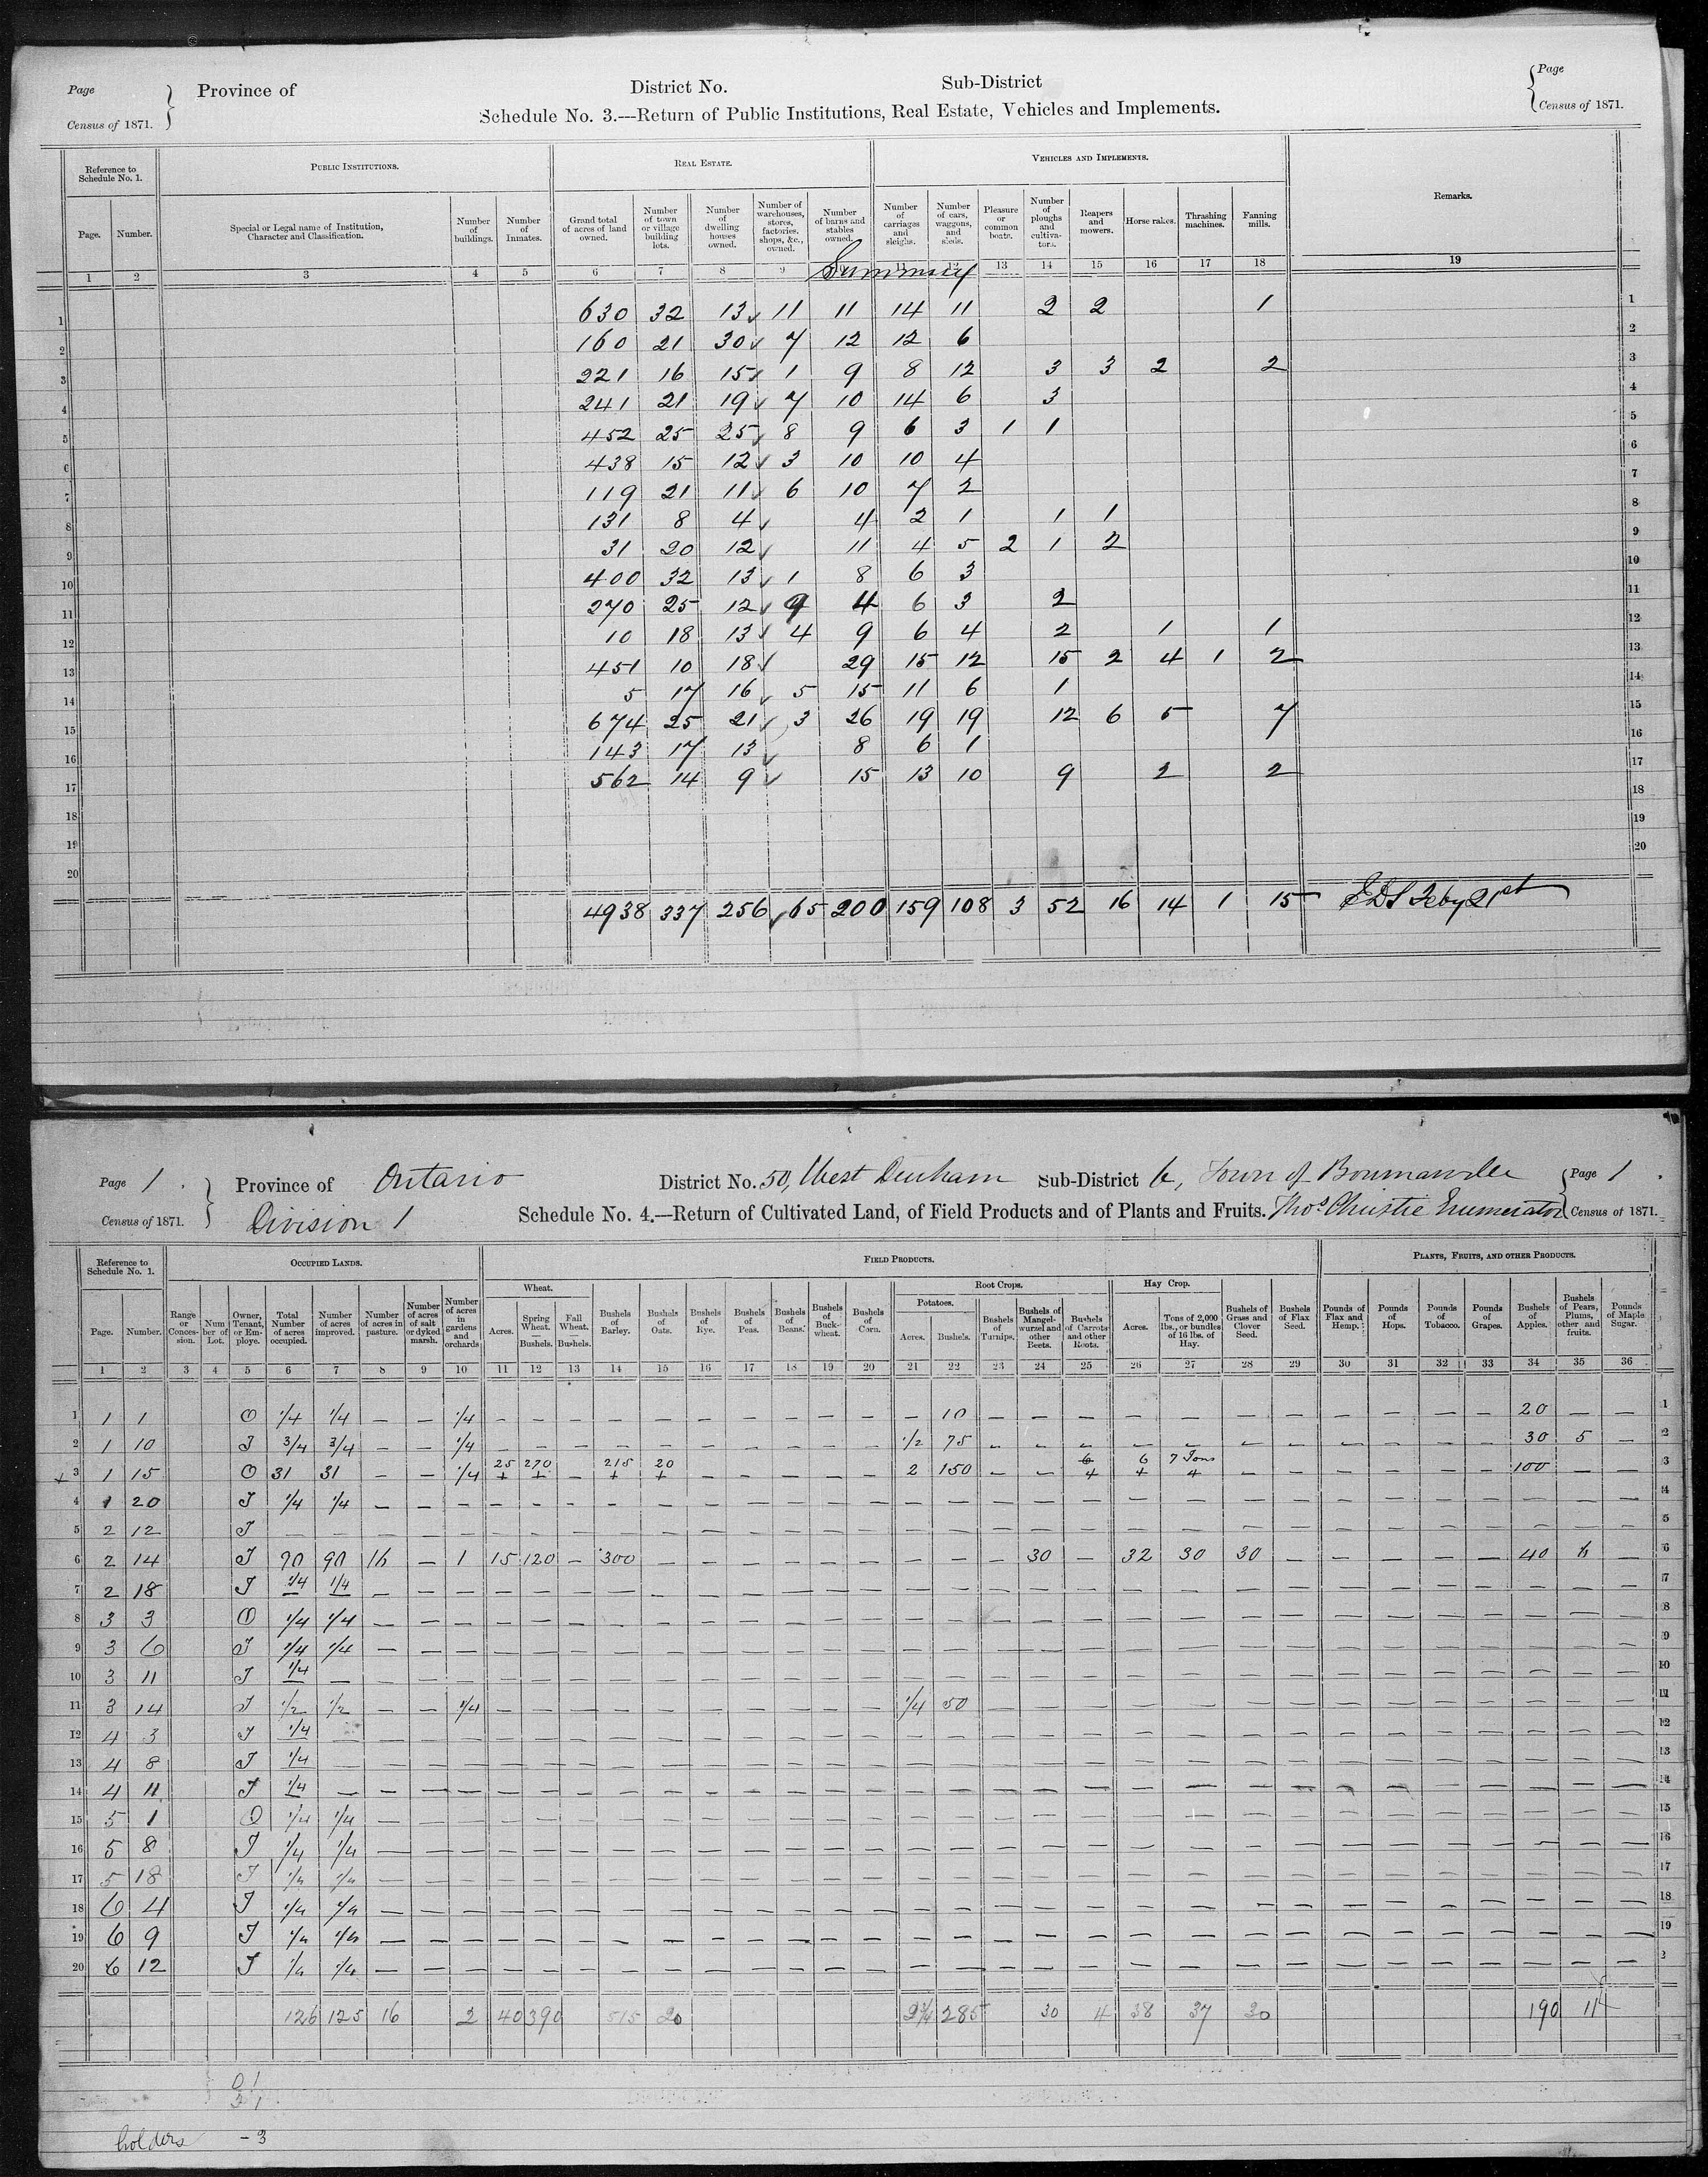 Page Province of District No. Sub-District Page
Census of 1871. Schedule No. 3.---Return of Public Institutions, Real Estate, Vehicles and Implements. Census of 1871.
Reference to Schedule No. 1. PUBLIC INSTITUTIONS. REAL ESTATE. VEHICLES AND IMPLEMENTS. Remarks.
Page. Number. Special or Legal name of Institution, Character and Classification. Number of buildings. Number of Inmates. Grand total of acres of land owned. Number of town or village building lots. Number of dwelling houses owned. Number of warehouses, stores, factories. shops, &c., owned. Number of barns and stables owned. Number of carriages and sleighs. Number of cars, waggons, and sleds. Pleasure or common boats. Number of ploughs and cultiva-tors. Reapers and mowers. Horse rakes. Thrashing machines. Fanning mills.
1 2 3 4 5 6 7 8 9 11 12 13 14 15 16 17 18 19
Summary
1 630 32 13 11 11 14 11 2 2 1 1
2 160 21 30 7 12 12 6 2
3 221 16 15 1 9 8 12 3 3 2 2 3
4 241 21 19 7 10 14 6 3 4
5 452 25 25 8 9 6 3 1 1 5
6 438 15 12 3 10 10 4 6
7 119 21 11 6 10 7 2 7
8 131 8 4 4 2 1 1 1 8
9 31 20 12 11 4 5 2 1 2 9
10 400 32 13 1 8 6 3 10
11 270 25 12 9 4 6 3 2 11
12 10 18 13 4 9 6 4 2 1 1 12
13 451 10 18 29 15 12 15 2 4 1 2 13
14 5 17 16 5 15 11 6 1 14
15 674 25 21 3 26 19 19 12 6 5 7 15
16 143 17 13 8 6 1 16
17 562 14 9 15 13 10 9 2 2 17
18 18
19 19
20 20
4938 337 256 65 200 159 108 3 52 16 14 1 15 Feby 21st
Page 1. Province of Ontario District No. 50, West Durham Sub-District b, Town of Bowmanville Page 1.
Census of 1871. Division 1 Schedule No. 4.—Return of Cultivated Land, of Field Products and of Plants and Fruits. Thos. Christie Enumerator Census of 1871.
Reference to Schedule No. 1. OCCUPIED LANDS. FIELD PRODUCTS. PLANTS, FRUITS, AND OTHER PRODUCTS.
Wheat. Root Crops. Hay Crop.
Potatoes.
Page. Number. Range or Conces-sion. Num ber of Lot. Owner, Tenant, or Em-ploye. Total Number of acres occupied. Number of acres improved. Number of acres in pasture. Number of acres of salt or dyked marsh. Number of acres in gardens and orchards Acres. Spring Wheat. — Bushels. Fall Wheat. — Bushels. Bushels of Barley. Bushels of Oats. Bushels of Rye. Bushels of Peas. Bushels of Beans. Bushels of Buck-wheat. Bushels of Corn. Acres. Bushels. Bushels of Turnips. Bushels of Mangel-wurzel and other Beets. Bushels of Carrots and other Roots. Acres. Tons of 2,000 lbs., or bundles of 16 lbs. of Hay. Bushels of Grass and Clover Seed. Bushels of Flax Seed. Pounds of Flax and Hemp. Pounds of Hops. Pounds of Tobacco. Pounds of Grapes. Bushels of Apples. Bushels of Pears, Plums, other and fruits. Pounds of Maple Sugar.
1 2 3 4 5 6 7 8 9 10 11 12 13 14 15 16 17 18 19 20 21 22 23 24 25 26 27 28 29 30 31 32 33 34 35 36
1 1 1 O 1/4 1/4 — — 1/4 — — — — — — — — — — — 10 — — — — — — — — — — — 20 — — 1
2 1 10 T 3/4 3/4 — — 1/4 — — — — — — — — — — 1/2 75 — — — — — — — — — — — 30 5 — 2
+ 3 1 15 O 31 31 — — 1/4 25 + 270 + — 215 + 20 + — — — — — 2 150 — — 6 4 6 + 7 Tons 4 — — — — — — 100 — — 3
4 1 20 T 1/4 1/4 — — — — — — — — — — — — — — — — — — — — — — — — — — — — — 4
5 2 12 T — — — — — — — — — — — — — — — — — — — — — — — — — — — — — — — 5
6 2 14 T 90 90 16 — 1 15 120 — 300 — — — — — — — — — 30 — 32 30 30 — — — — — 40 6 — 6
7 2 18 T 1/4 1/4 — — — — — — — — — — — — — — — — — — — — — — — — — — — — — 7
8 3 3 O 1/4 1/4 — — — — — — — — — — — — — — — — — — — — — — — — — — — — — 8
9 3 6 T 1/4 1/4 — — — — — — — — — — — — — — — — — — — — — — — — — — — — — 9
10 3 11 T 1/4 — — — — — — — — — — — — — — — — — — — — — — — — — — — — — — 10
11 3 14 T 1/2 1/2 — — 1/4 — — — — — — — — — — 1/4 50 — — — — — — — — — — — — — — 11
12 4 3 T 1/4 — — — — — — — — — — — — — — — — — — — — — — — — — — — — — 12
13 4 8 T 1/4 — — — — — — — — — — — — — — — — — — — — — — — — — — — — — — 13
14 4 11 T 1/4 — — — — — — — — — — — — — — — — — — — — — — — — — — — — — — 14
15 5 1 O 1/4 1/4 — — — — — — — — — — — — — — — — — — — — — — — — — — — — — 15
16 5 8 T 1/4 1/4 — — — — — — — — — — — — — — — — — — — — — — — — — — — — — 16
17 5 18 T 1/4 1/4 — — — — — — — — — — — — — — — — — — — — — — — — — — — — — 17
18 6 4 T 1/4 1/4 — — — — — — — — — — — — — — — — — — — — — — — — — — — — — 18
19 6 9 T 1/4 1/4 — — — — — — — — — — — — — — — — — — — — — — — — — — — — — 19
20 6 12 T 1/4 1/4 — — — — — — — — — — — — — — — — — — — — — — — — — — — — —
126 125 16 2 40 390 515 20 2 3/4 285 30 4 38 37 30 190 11
holders - 3